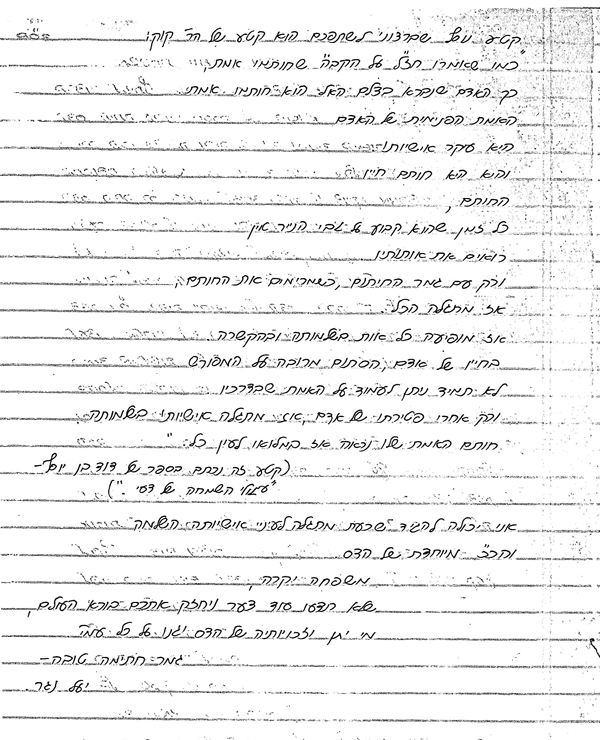 קטע נוסף שברצוני לשתפכם הוא קטע של הר' קוק:
"כמו שאמרו חז"ל על הקב"ה שחותמו אמת,
כך האדם שנברא בצלם האל הוא חותמו אמת.
האמת הפנימית של האדם
היא עקר אישיותו
והיא הא חותם חייו.
החותם,
כל זמן שהוא קבוע על גבי הנייר אין
רואים את אותותיו
ורק עם גמר החיתום, כשמרימים את החותם,
אז מתגלה הכל.
אז מופיעה כל אות בשלמותה ובהקשרה.
בחייו של אדם, הסתום מרובה על המפורש
לא תמיד ניתן לעמוד על האמת שבדרכיו
ורק אחרי פטירתו של אדם, אז מתגלה אישיותו בשלמותה.
חותם האמת שלו נראה אז במלואו לעין כל."
(קטע זה נכתב בספר של דוד בן יוסף-
השמחה של דעי".)
אני יכולה להגיד שכעת מתגלה לעיני אישיותה השלמה
והכ"כ מיוחדת של הדס.
משפחה יקרה,
שלא תדעו עוד צער ויחזק אתכם בורא העולם,
מי יתן וזכויותיה של הדס יגנו על כל עמ"י
גמר חתימה טובה-
יעל נגר.